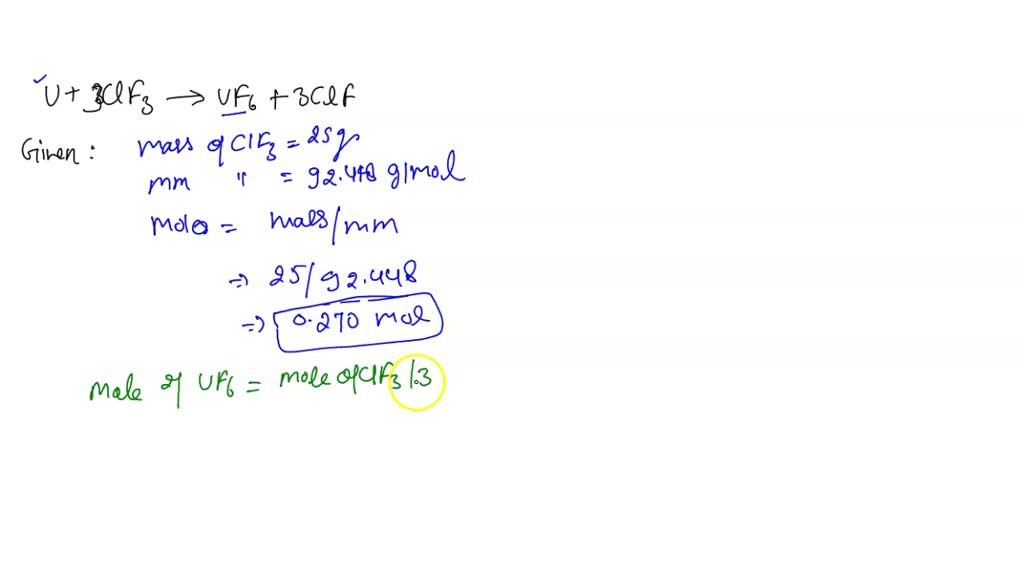 U + 3ClF3 → UF6 + 3ClF
Given : mass of ClF3 = 25g
mm " = 92.448 g/mol
mole = mass/mm
⇒ 25/92.448
⇒ 0.270 mol
mole of UF6 = mole of ClF3 / 3